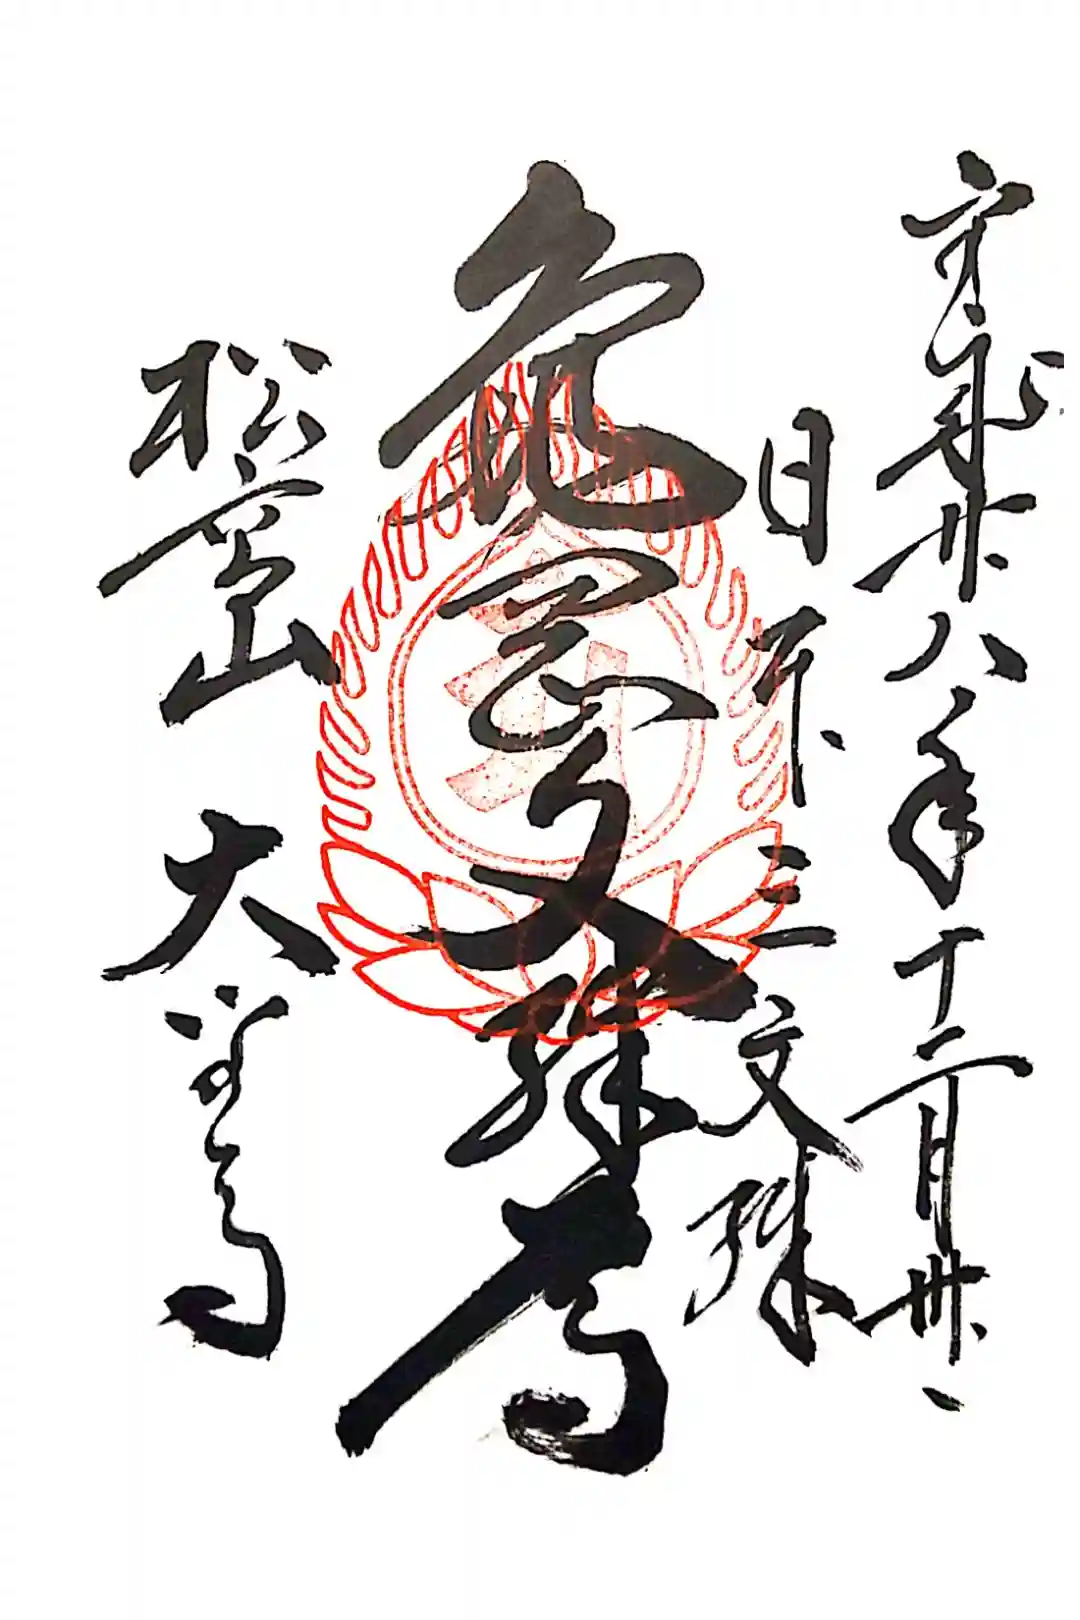 平成廿八年十二月卅一
日本三文殊
亀岡文殊
松高山 大聖寺